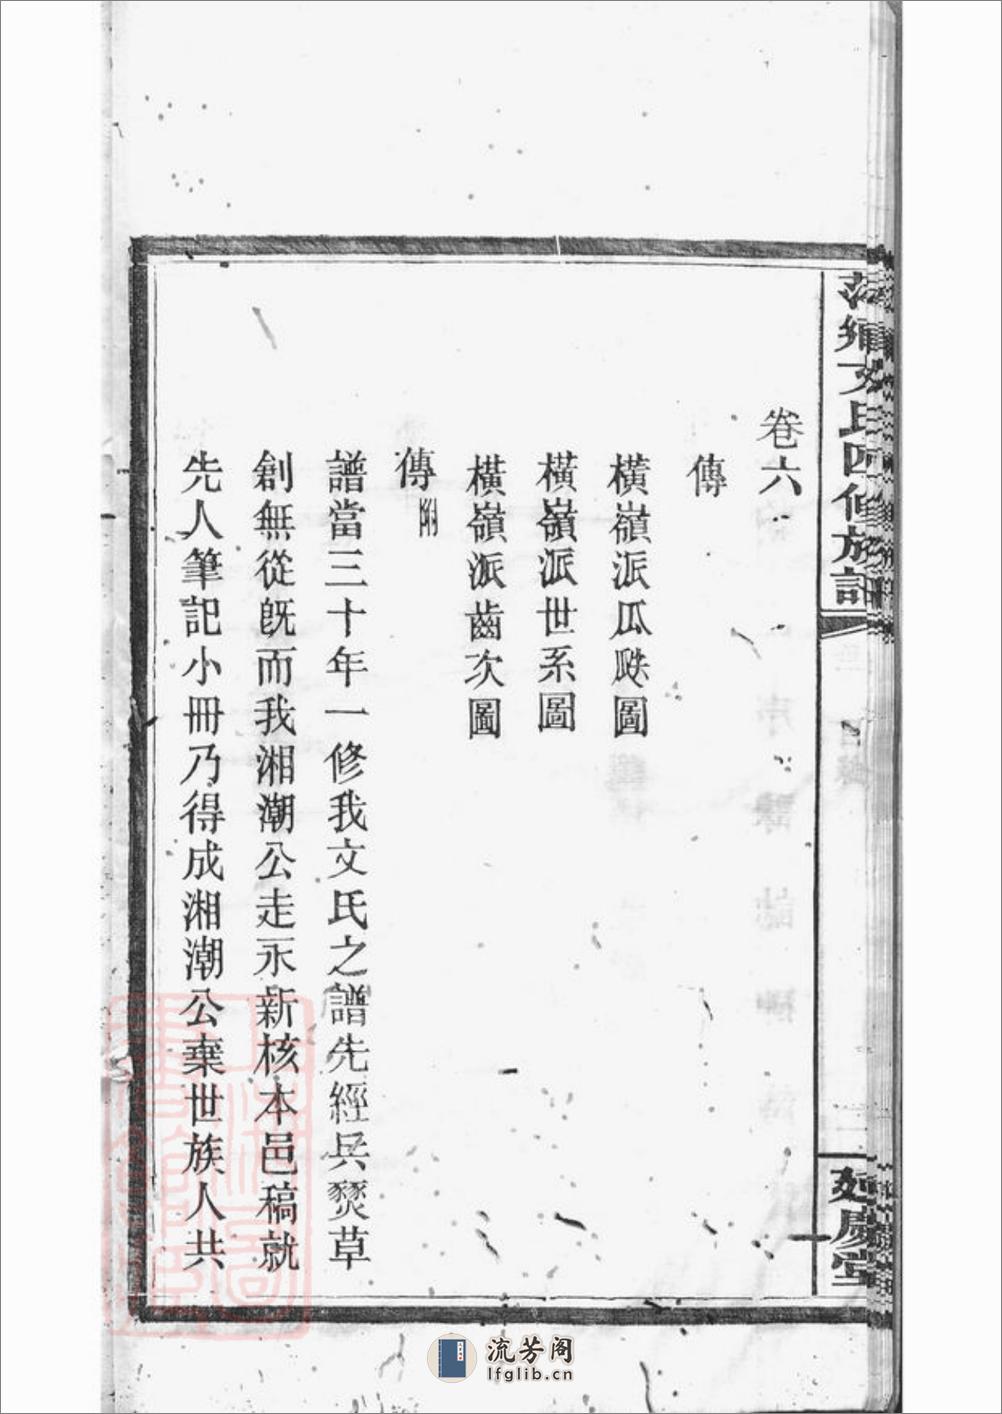 萍鄉文氏四修族記
卷六
傳
橫嶺派瓜瓞圖
橫嶺派世系圖
橫嶺派齒次圖
傳附
譜當三十年一修我文氏之譜先經兵燹草
創無從旣而我湘潮公走永新核本邑稿就
先人筆記小冊乃得成湘潮公棄世族人共
流芳阁
lfglib.cn